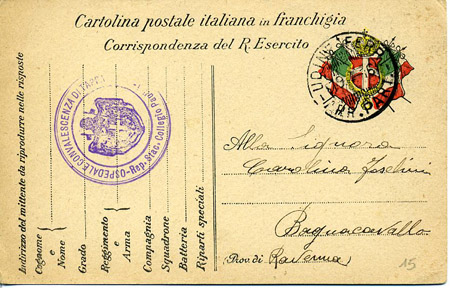 Cartolina postale italiana in franchigia
Corrispondenza del R. Esercito
UDINE FERR
ARR. PART
OSPEDALE CONVALESCENZA DI TAPPA
Rep. Stac. Collegio
Indirizzo del mittente da riprodurre nelle risposte
Cognome
e
Nome
Grado
Reggimento
e
Arma
Compagnia
Squadrone
Batteria
Riparti speciali
Alla Signora
Carolina
Bagnacavallo
(Prov. di Ravenna)
15